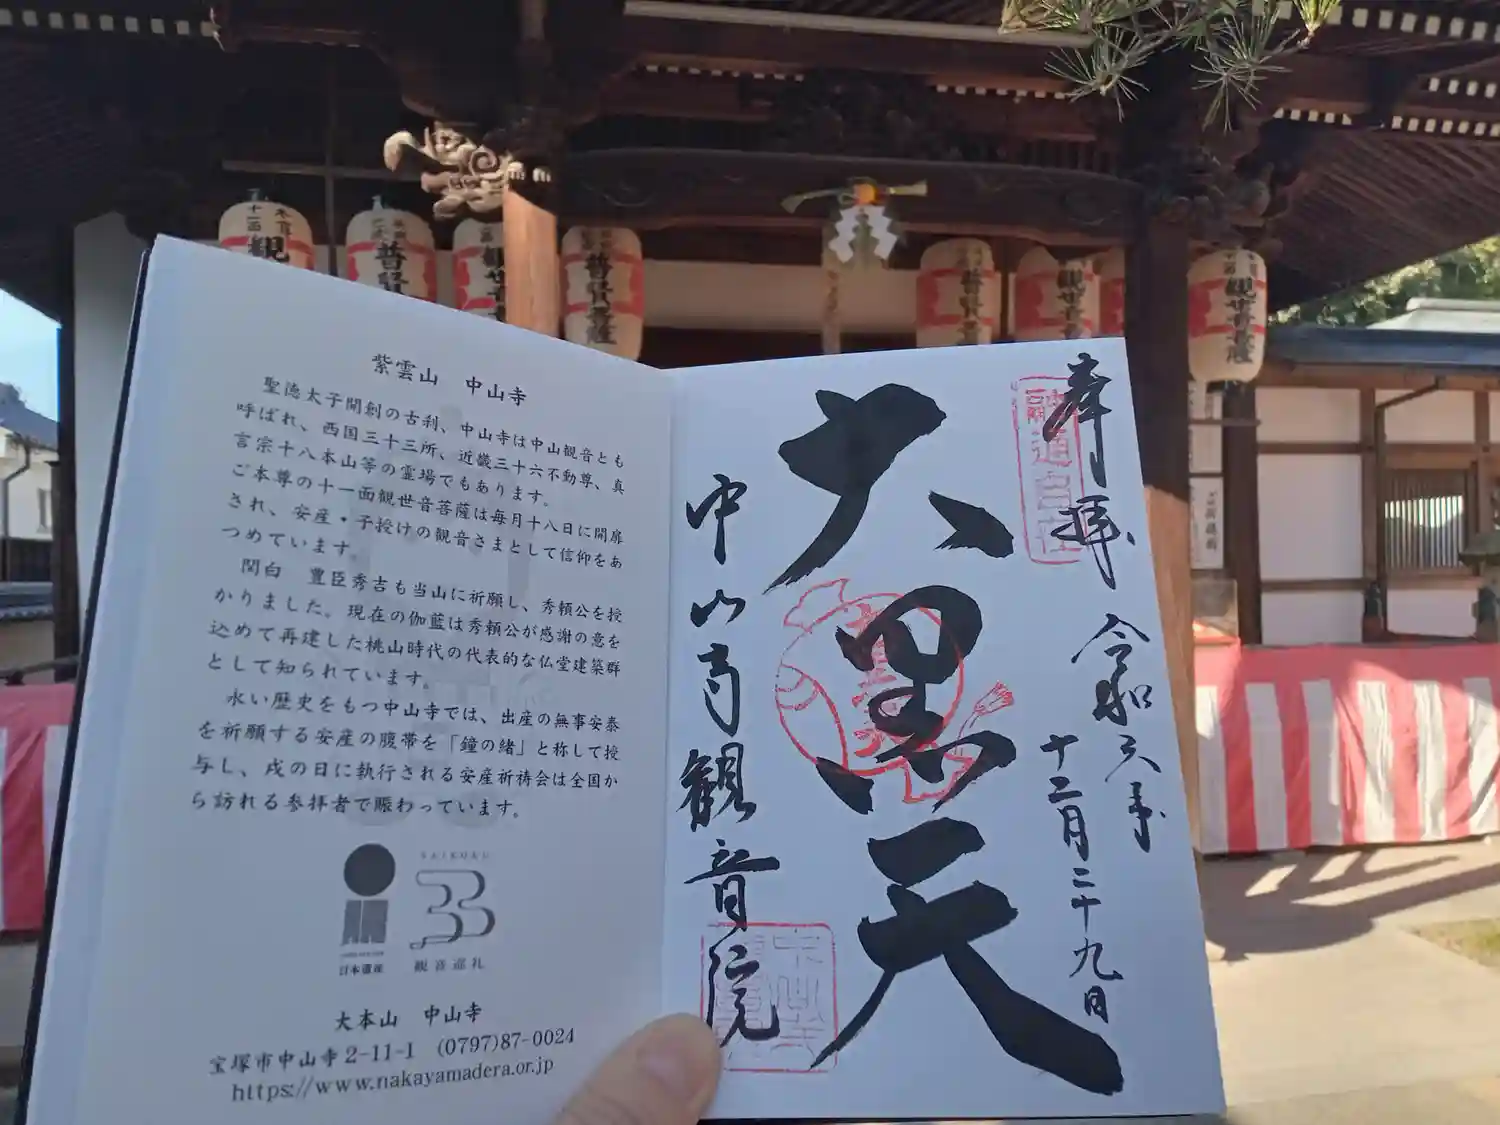 紫雲山　中山寺
聖徳太子開創の古刹、中山寺は中山観音とも
呼ばれ、西国三十三所、近畿三十六不動尊、真
言宗十八本山等の霊場でもあります。
ご本尊の十一面観世音菩薩は毎月十八日に開扉
され、安産・子授けの観音さまとして信仰をあ
つめています。
関白　豊臣秀吉も当山に祈願し、秀頼公を授
かりました。現在の伽藍は秀頼公が感謝の意を
込めて再建した桃山時代の代表的な仏堂建築群
として知られています。
永い歴史をもつ中山寺では、出産の無事安泰
を祈願する安産の腹帯を「鐘の緒」と称して授
与し、戌の日に執行される安産祈祷会は全国か
ら訪れる参拝者で賑わっています。
日本遺産
SAIKOKU
33
観音巡礼
大本山　中山寺
宝塚市中山寺2-11-1　(0797)87-0024
https://www.nakayamadera.or.jp
奉拝
令和六年
十二月二十九日
大黒天
中山寺観音院
観
普賢
観世
普賢菩薩
普賢菩
観世音
観世音菩薩